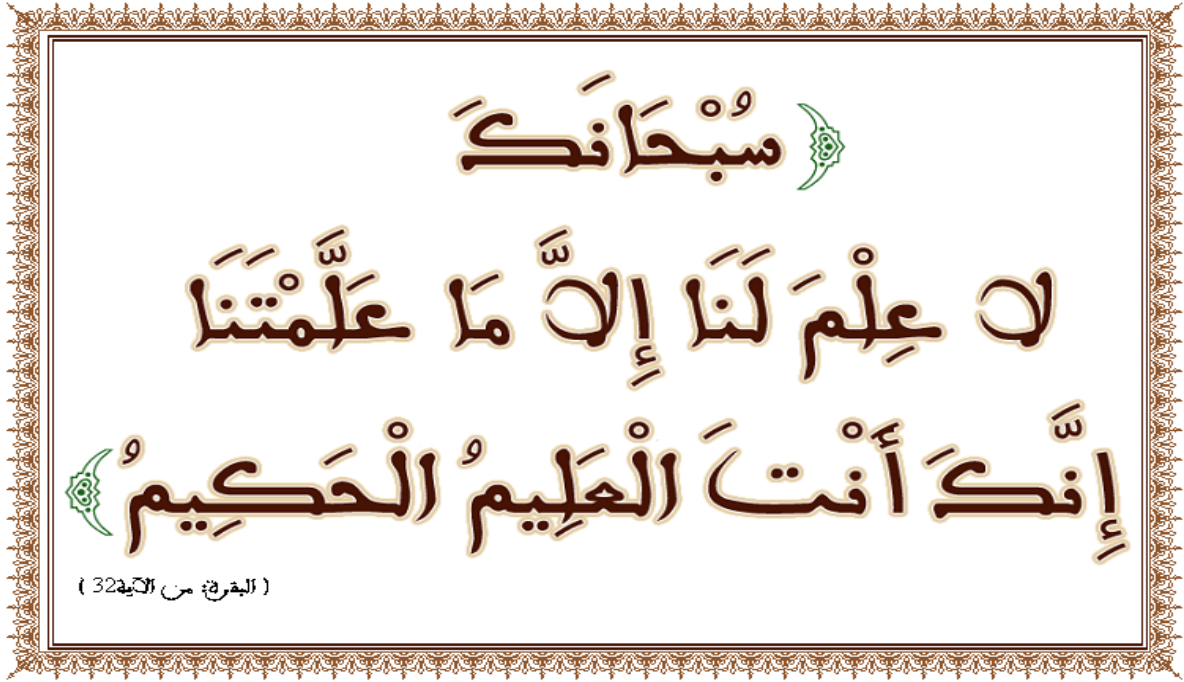 ﴿سُبْحَانَكَ
لا عِلْمَ لَنَا إِلاَّ مَا عَلَّمْتَنَا
إِنَّكَ أَنْتَ الْعَلِيمُ الْحَكِيمُ﴾
( البقرة: من الآية32 )